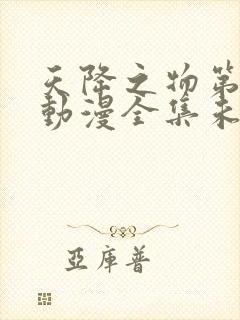 天降之物第
動漫全集未
亞庫普